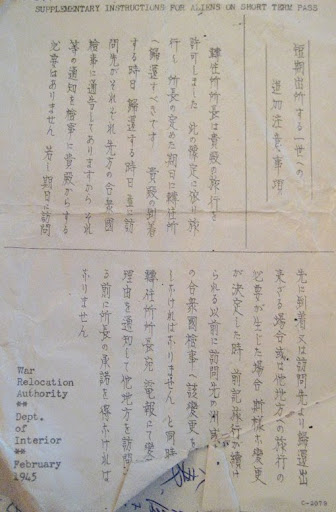 SUPPLEMENTARY INSTRUCTIONS FOR ALIENS ON SHORT TERM PASS
短期出所する一世への
追加注意事項
轉住所所長は貴殿の旅行を
許可しました 此の豫定に依り旅
行し 所長の定めた期日に轉住所
へ歸還すべきです 貴殿の到着
する時日 歸還する時日 並に訪
問先がそれぞれ先方の合衆國
檢事に通告してありますから それ
等の通知を檢事に貴殿からする
必要はありません 若し期日に訪問
先に到着又は訪問先より歸還出
來ざる場合 或は他地方への旅行の
必要が生じた場合 斯様な變更
が決定した時 前記旅行が續け
られる以前に訪問先の州或
の合衆國檢事へ該變更を
しなければなりません と同時
轉住所所長宛 電報にて變
理由を通知して他地方を訪問
る前に所長の承諾を得なければ
なりません
War
Relocation
Authority
**
Dept.
of
Interior
**
February
1945